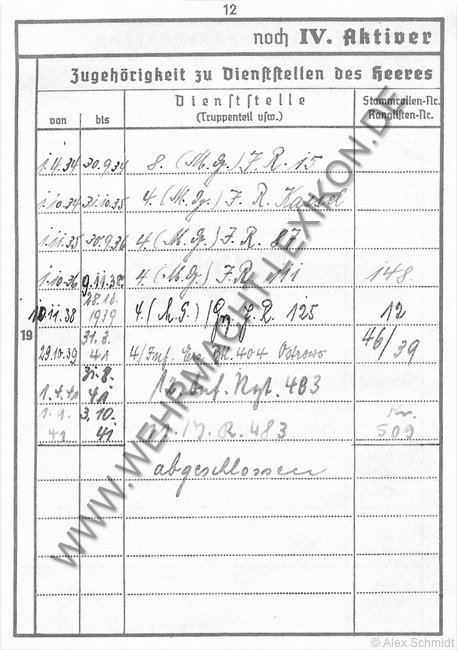 12
noch IV. Aktiver
Zugehörigkeit zu Dienststellen des Heeres
von bis Dienststelle (Truppenteil usw.) Stammrollen-Nr. Ranglisten-Nr.
1.4.34 30.9.34 8. (M.G.) J.R. 15
1.10.34 31.10.35 4. (M.G.) J.R. Kassel
1.11.35 30.9.36 4. (M.G.) J.R. 87
1.10.36 9.11.38 4. (M.G.) J.R. 111 148
10.11.38 28.10.1939 4. (M.G.) / J.R. 125 12
19
29.10.39 31.3.41 4/Inf. Ers. Btl. 404 46/39
1.4.41 31.8.41 Inf. Rgt. 483
1.9.41 3.10.41 J.R. 483 Nr. 509
abgeschlossen
WWW.WEHRMACHT-LEXIKON.DE
© Alex Schmidt